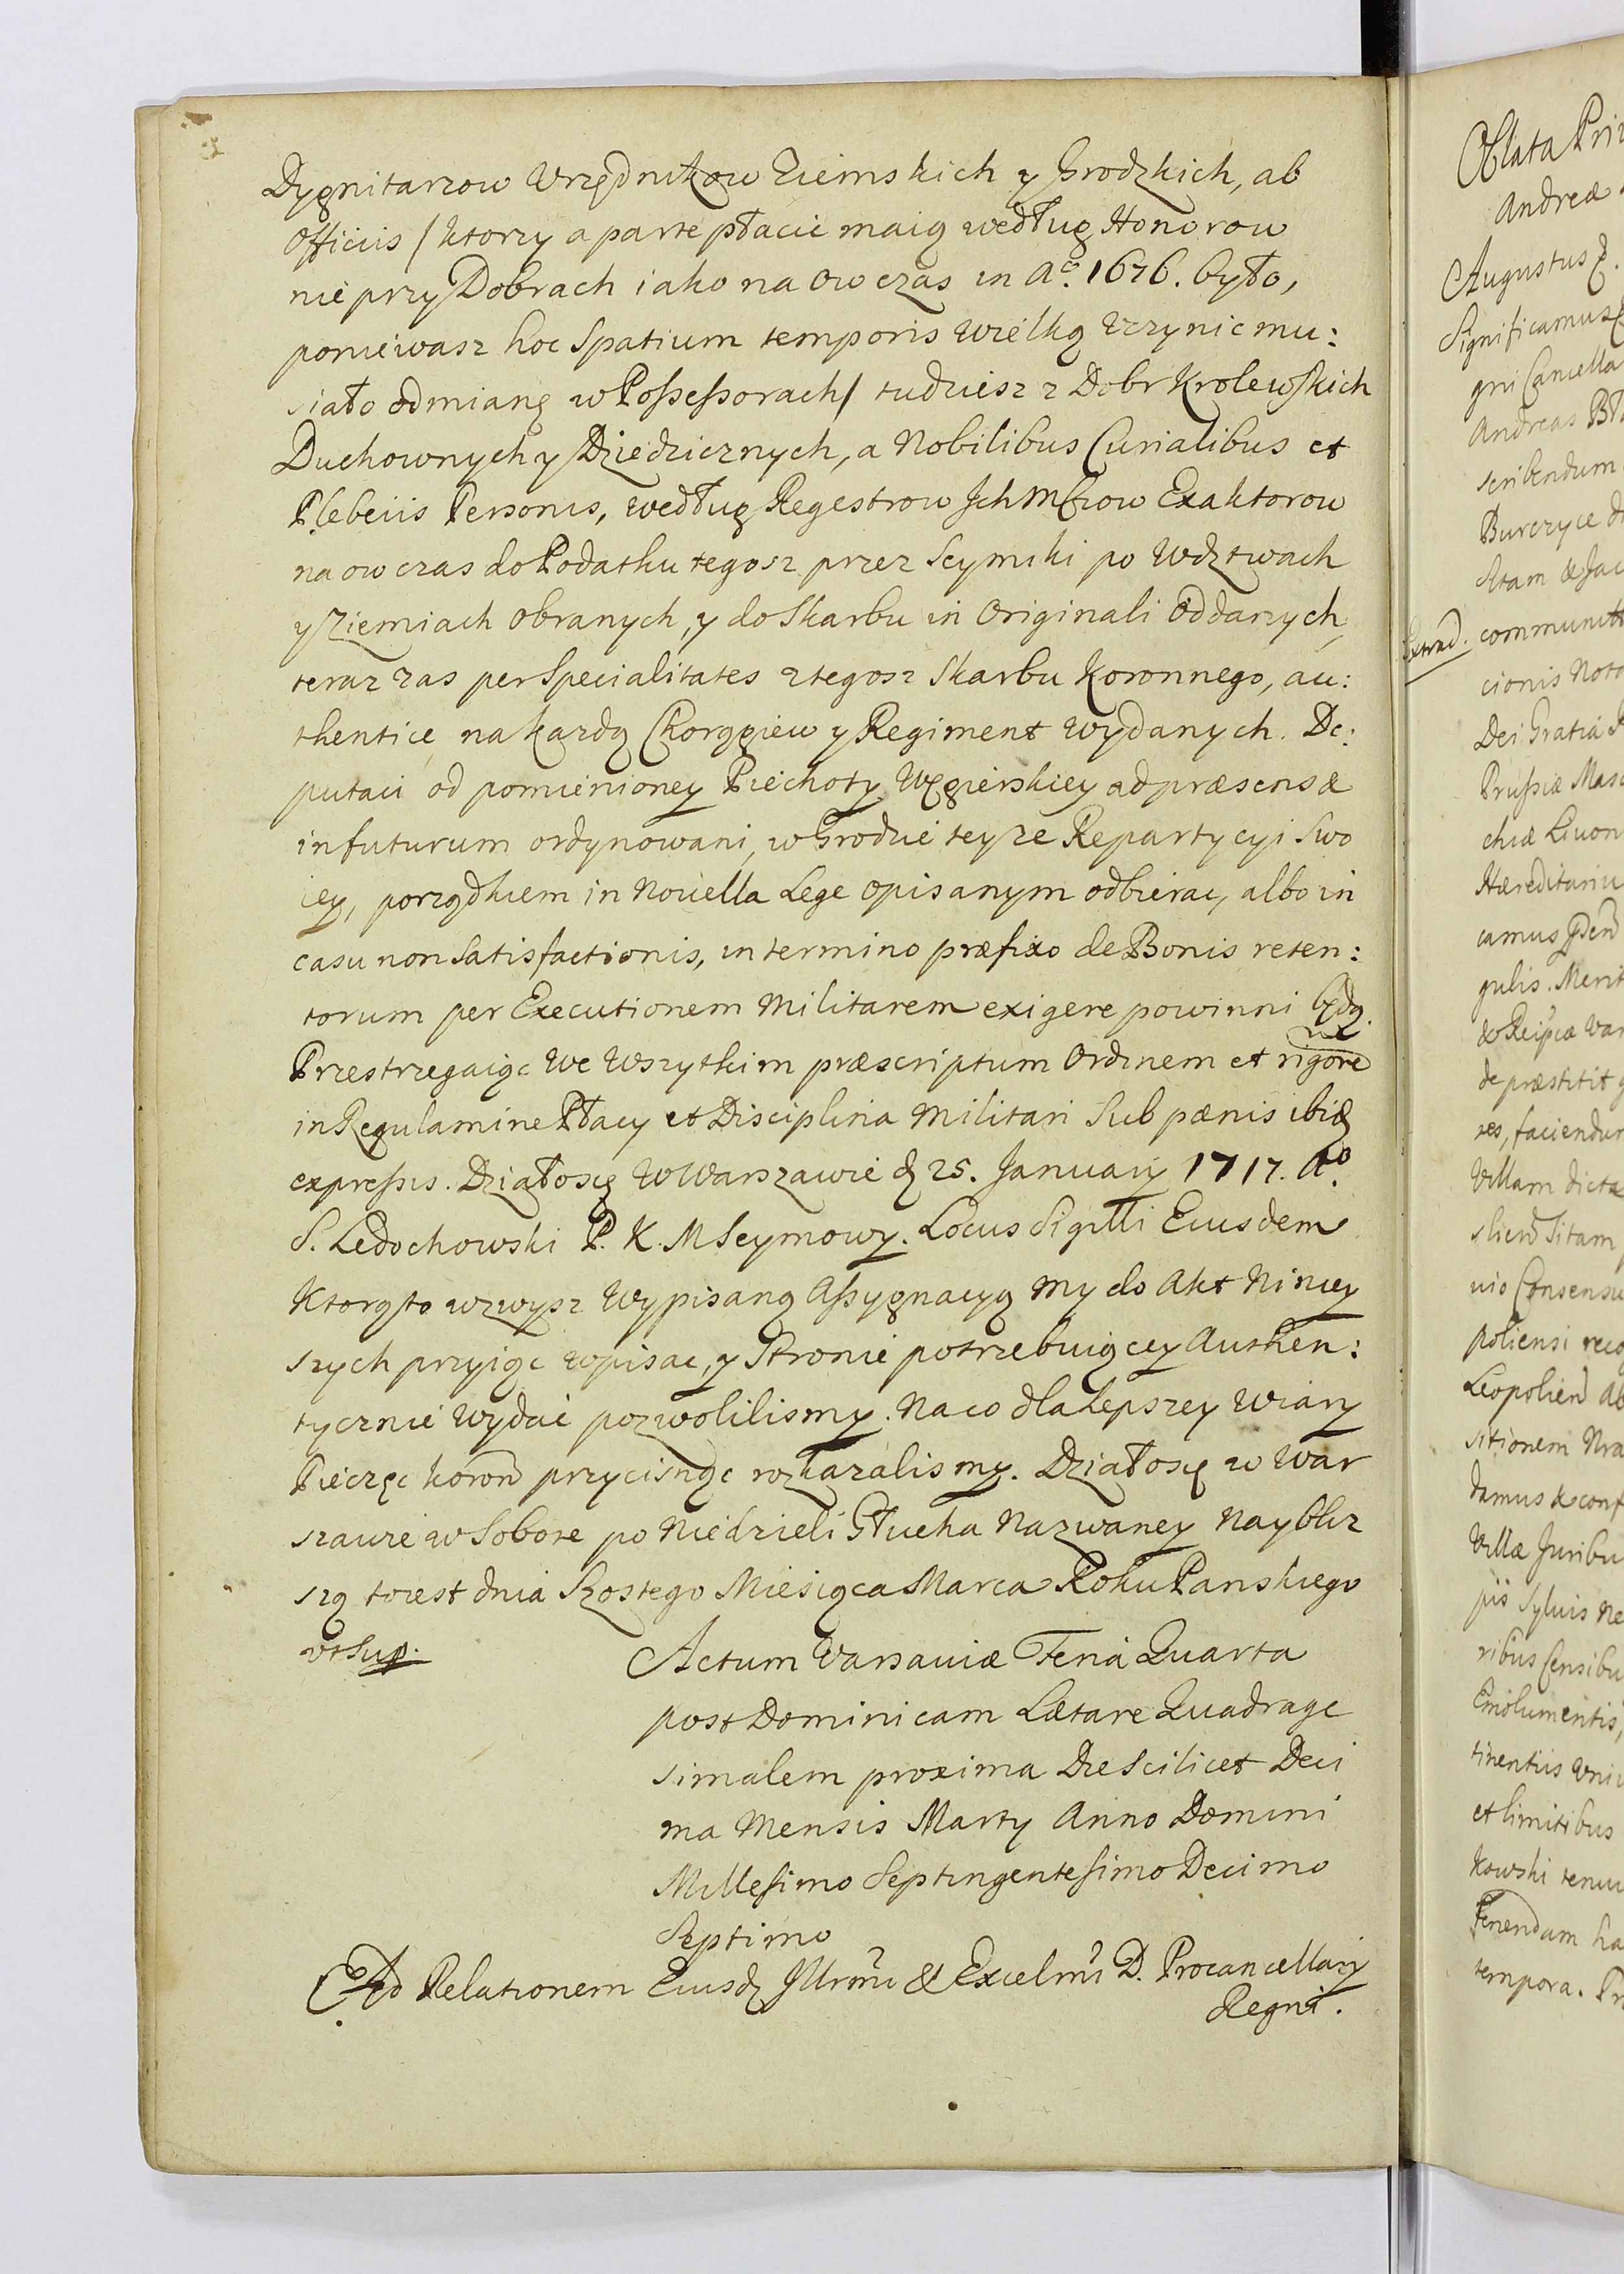 Dygnitarzow Vrzędnikow Ziemskich y Grodzkich, ab
Officiis / ktorzy a parte płacic maią według Honorow
nie przy Dobrach iako na ow czas in Aº. 1676. było,
poniewasz hoc Spatium temporis wielką Vczynic mu:
siało odmianę w Poſseſsorach / tudziesz z Dobr Krolewſkich
Duchownych y Dziedzicznych, a Nobilibus Curialibus et
Plebeiis Personis, według Regestrow Jch Mſciow Exaktorow
na ow czas do Podatku tegosz przez Seymiki po Wdztwach
y Ziemiach obranych, y do Skarbu in Originali Oddanych,
teraz zas per Specialitates z tegosz Skarbu Koronnego, au:
thentice na kazdą Chorągiew y Regiment wydanych. De:
putaci od pomienioney Piechoty Węgierskiey ad præsens &
in futurum ordynowani, w Grodzie teyze Repartycyi Swo
iey, porządkiem in Novella Lege opisanym odbierac, albo in
casu non Satisfactionis, in termino præfixo de Bonis reten:
torum per Executionem Militarem exigere powinni będą.
Przestrzegaiąc We Wszytkim præscriptum Ordinem et rigore
in Regulamine Płacy et Disciplina Militari Sub pænis ibid
expreſsis. Działosię W Warszawie d 25. Januarij 1717. Aº.
S. Ledochowski P. K. M Seymowy. Locus Sigilli Eiusdem
Ktorąto wzwysz Wypisaną Aſsygnacyą my do Akt Niniey
szych przyiąc wpisac, y Stronie potrzebuiącey Authen:
tycznie Wydac pozwolilismy. Na co dla Lepszey Wiary
Pieczęc Koron przycisnąc rozkazalismy. Działosię w War
szawie w Sobote po Niedzieli Głucha Nazwaney Nayblisz
szą toiest dnia Szostego Miesiąca Marca Roku Panskiego
vt Sup.
Actum Varsaviæ Feria Quarta
post Dominicam Lætare Quadrage
simalem proxima Die Scilicet Deci
ma Mensis Martij Anno Domini
Milleſimo Septingenteſimo Decimo
Septimo
Ad Relationem Eiusd Jllrmi & Excelmi D. Procancellarij
Regni.
Oblata Pri
Andreæ
Augustus 2.
Significamus
gni Cancella
Andreas
scribendum
Burczyce
Extrad. communit
cionis Nota
Dei Gratia
Pruſsiæ Mas
chiæ Livon
Hæreditariu
camus
gulis. Merit
de præstitit
res, faciendu
Villam dicta
Sitam
vio Consensu
poliensi reco
sitionem Nra
damus & conf
Villæ Juribu
Sylvis Ne
ribus Censibu
Emolumentis,
tinentiis Vni
et limitibus
kowski tenu
Tenendam ha
tempora.